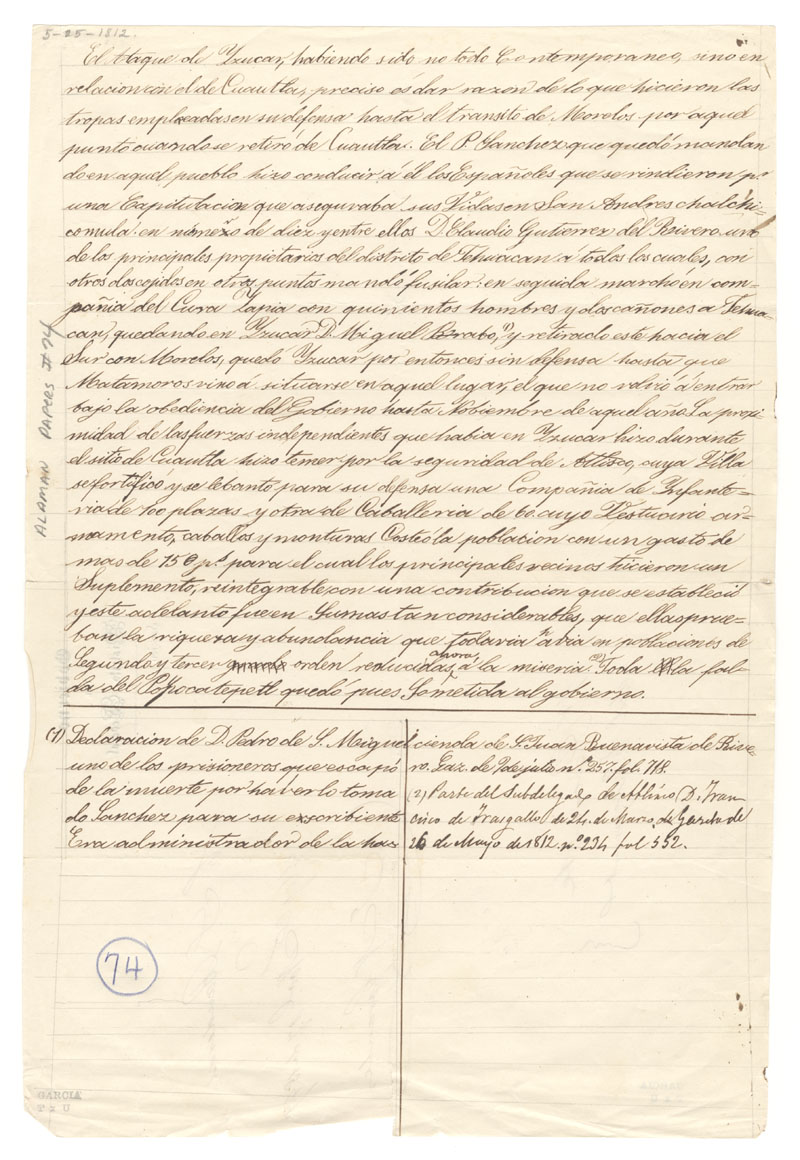 5-25-1812.
El Ataque de Yzucar, habiendo sido no todo Contemporaneo, sino en
relacion con el de Cuautla, preciso es dar razon de lo que hicieron las
tropas empleadas en su defensa hasta el transito de Morelos por aquel
punto cuando se retiró de Cuautla. El P. Sanchez que quedó manolan
do en aquel pueblo hizo conducir á él los Españoles que se rindieron pr.
una Capitulacion que aseguraba sus Vidas en San Andres chalchi-
comula: en numero de diez y entre ellos D. Claudio Gutierrez del Rivero uno
de los principales propietarios del distrito de Tehuacan á todos los cuales, con
otros dos cojidos en otros puntos mandó fusilar: en seguida marchó en com-
pañia del Cura Tapia con quinientos hombres y dos cañones a Tehua-
can, quedando en Yzucar D. Miguel Brabo, (1) y retirado este hacia el
Sur con Morelos, quedo Yzucar por entonces sin defensa hasta que
Matamoros vino á situarse en aquel lugar, el que no volvió á entrar
bajo la obediencia del Gobierno hasta Nobiembre de aquel año. La proxi-
midad de las fuerzas independientes que habia en Yzucar hizo durante
el sitio de Cuautla hizo temer por la seguridad de Atlisco, cuya Villa
se fortificó y se lebanto para su defensa una Compañia de Ynfante-
ria de 100 plazas y otra de Caballeria de 60. cuyo Vestuario ar-
mamento, caballos y monturas Costeó la poblacion con un gasto de
mas de 15@ ps. para el cual los principales vecinos hicieron un
Suplemento, reintegrable con una contribucion que se estableció
y este adelanto fue en Sumas tan considerables, que ellas prue-
ban la riqueza y abundancia que todavia avia en poblaciones de
Segundo y tercer orden reducidas ahora á la miseria (2) Toda la fal-
da del Popocatepetl quedó pues Sometida al gobierno.
(1) Declaracion de D. Pedro de S. Miguel
uno de los prisioneros que escapó
de la muerte por haverlo toma
do Sanchez para su escribiente
Era administrador de la ha
cienda de S. Juan Buenavista de Rive-
ro. Gaz. de 7 de julio n.º 257. fol. 718.
(2) Parte del Subdelegado de Atlixco, D. Fran
cisco de Fraigallo de 24. de Marzo. de Gaceta de
26 de Mayo de 1812. n.º 234 fol 552.
ALAMAN PAPERS #74
74
GARCIA
T x U